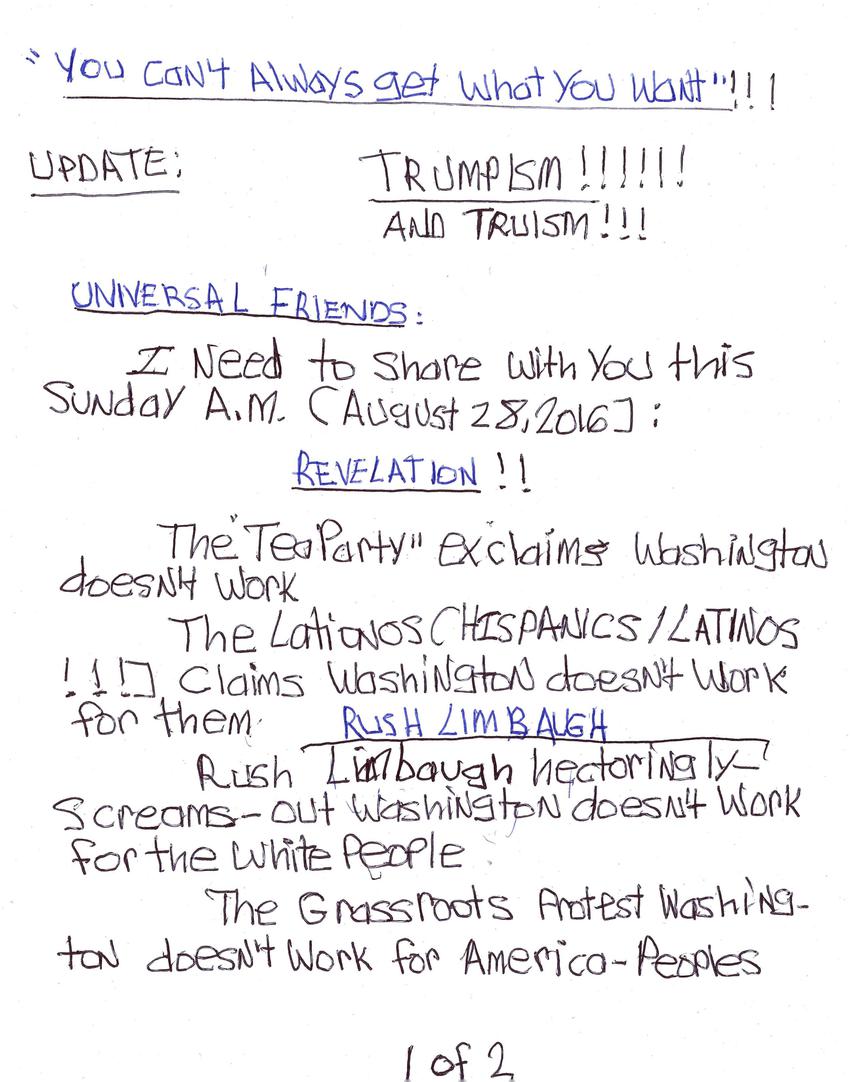 "You Can't Always get What You Want"!!!
UPDATE: TRUMPISM !!!!!!
AND TRUISM!!!
UNIVERSAL FRIENDS:
I Need to Share With You this
Sunday A.M. (August 28, 2016] :
REVELATION !!
The "Tea Party" exclaims Washington
doesn't Work
The Lationos (HISPANICS / LATINOS
!!!] Claims Washington doesn't Work
for them. RUSH LIMBAUGH
Rush Limbaugh hectoringly-
Screams-out Washington doesn't Work
for the White People
The Grassroots Protest Washing-
ton doesn't Work for America-Peoples
1 of 2